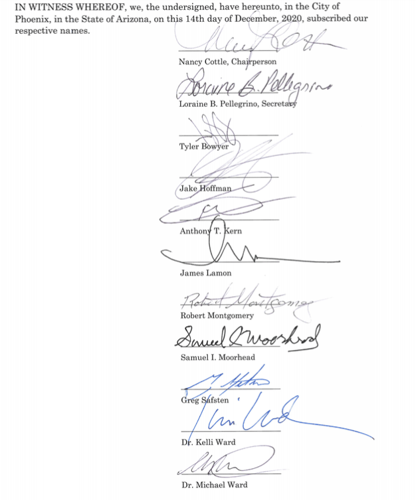 IN WITNESS WHEREOF, we, the undersigned, have hereunto, in the City of
Phoenix, in the State of Arizona, on this 14th day of December, 2020, subscribed our
respective names.
Nancy Cottle, Chairperson
Loraine B. Pellegrino
Loraine B. Pellegrino, Secretary
Tyler Bowyer
Jake Hoffman
Anthony T. Kern
James Lamon
Robert Montgomery
Robert Montgomery
Samuel I. Moorhead
Greg Safsten
Dr. Kelli Ward
Dr. Michael Ward